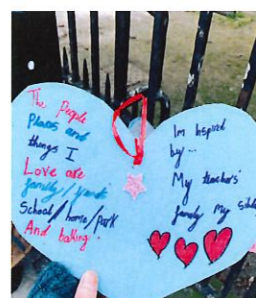 The People
Places and
things I
Love are
family/friends
School/home/park
And baking.
Im Inspired
by...
My teachers'
family My